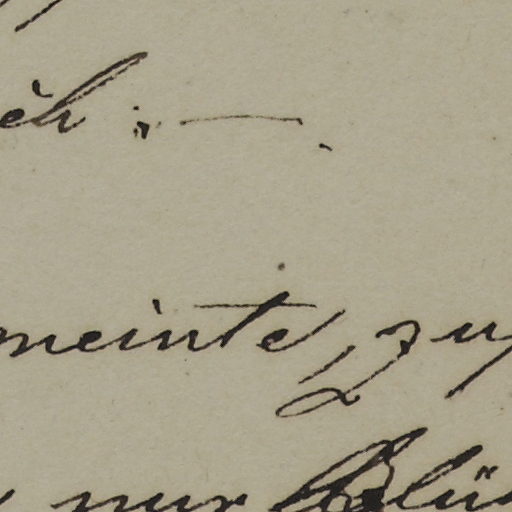 ch; —.
meinte, zu
nur Blü